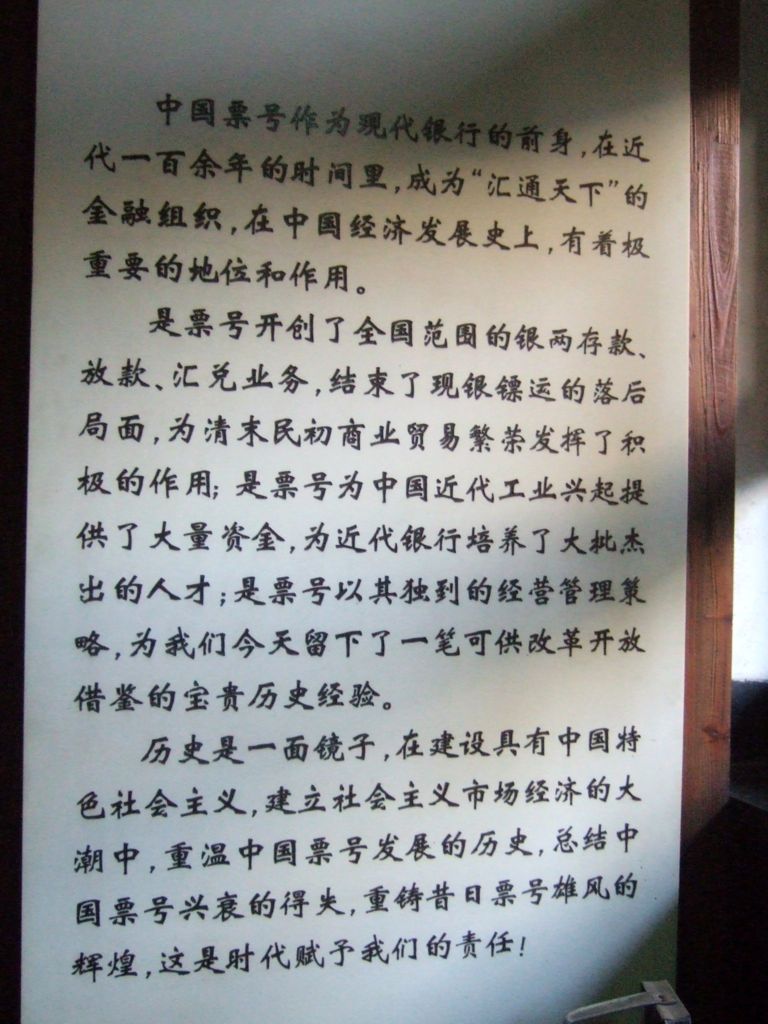 中国票号作为现代银行的前身,在近
代一百余年的时间里,成为“汇通天下”的
金融组织,在中国经济发展史上,有着极
重要的地位和作用。
是票号开创了全国范围的银两存款、
放款、汇兑业务,结束了现银镖运的落后
局面,为清末民初商业贸易繁荣发挥了积
极的作用;是票号为中国近代工业兴起提
供了大量资金,为近代银行培养了大批杰
出的人才;是票号以其独到的经营管理策
略,为我们今天留下了一笔可供改革开放
借鉴的宝贵历史经验。
历史是一面镜子,在建设具有中国特
色社会主义,建立社会主义市场经济的大
潮中,重温中国票号发展的历史,总结中
国票号兴衰的得失,重铸昔日票号雄风的
辉煌,这是时代赋予我们的责任!